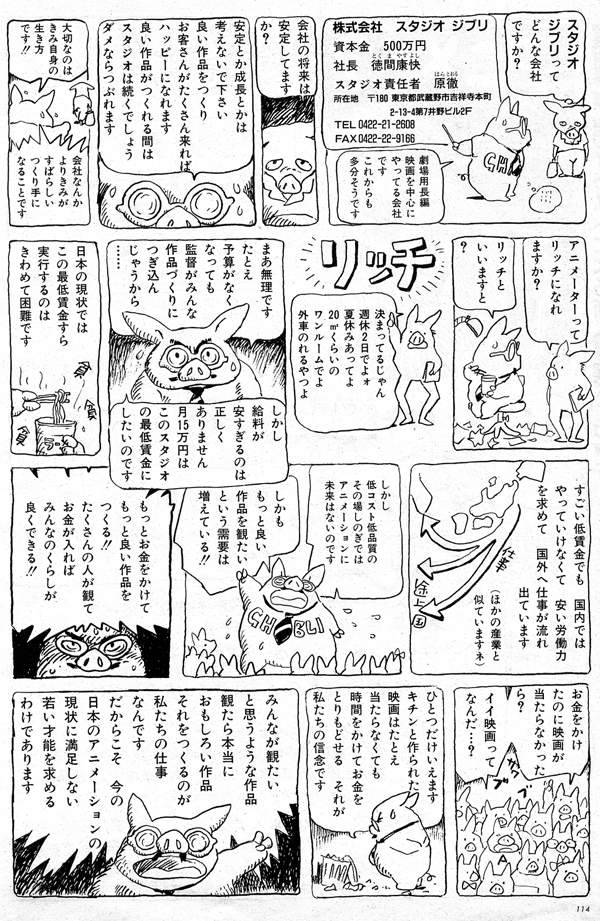 スタジオ
ジブリって
どんな会社
ですか?
株式会社 スタジオ ジブリ
資本金 500万円
とくまやすよし
社長 徳間康快
はらとおる
スタジオ責任者 原徹
所在地 〒180 東京都武蔵野市吉祥寺本町
2-13-4第7井野ビル2F
TEL0422-21-2608
FAX0422-22-9166
劇場用長編
映画を中心に
やってる会社
これからも
多分そうです
会社の将来は
安定してます
か?
安定とか成長とかは
考えないで下さい
良い作品をつくり
お客さんがたくさん来れば
ハッピーになれます
良い作品がつくれる間は
スタジオは続くでしょう
ダメならつぶれます
大切なのは
きみ自身の
生き方
です!!
会社なんか
よりきみが
すばらしい
つくり手に
なることです
アニメーターって
リッチになれ
ますか?
リッチと
いいますと
?
リッチ
決まってるじゃん
週休2日でよォ
夏休みあってよ
20㎡くらいの
ワンルームでよ
外車のれるやつよ
まあ無理です
たとえ
予算がなく
なっても
監督がみんな
作品づくりに
つぎ込ん
じゃうから
……
しかし
給料が
安すぎるのは
正しく
ありません
月15万円は
このスタジオ
の最低賃金に
したいのです
日本の現状では
この最低賃金すら
実行するのは
きわめて困難です
貧
貧
貧
ラーメン
すごい低賃金でも 国内では
やっていけなくて 安い労働力
を求めて 国外へ仕事が流れ
出ています
(ほかの産業と
似ていますネ)
仕事
途上国
しかし
低コスト低品質の
その場しのぎでは
アニメーションに
未来はないのです
しかも
もっと良い
作品を観たい
という需要は
増えている!!
GHIBLI
もっとお金をかけて
もっと良い作品を
つくる!!
たくさんの人が観て
お金が入れば
みんなのくらしが
良くできる!!
お金をかけ
たのに映画が
当たらなかった
ら?
イイ映画って
なんだ…?
ブツブツ
ひとつだけいえます
キチンと作られた
映画はたとえ
当たらなくても
時間をかけてお金を
とりもどせる それが
私たちの信念です
みんなが観たい
と思うような作品
観たら本当に
おもしろい作品
それをつくるのが
私たちの仕事
なんです
だからこそ 今の
日本のアニメーションの
現状に満足しない
若い才能を求める
わけであります
114